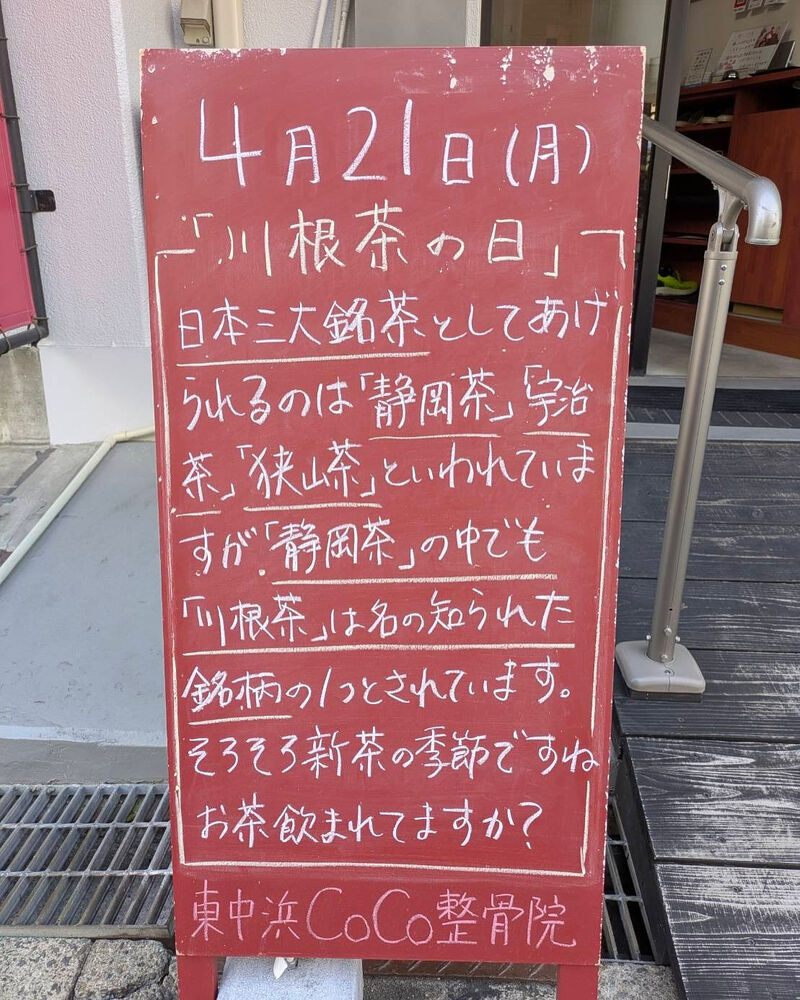 4月21日(月)
「川根茶の日」
日本三大銘茶としてあげ
られるのは「静岡茶」「宇治
茶」「狭山茶」といわれていま
すが「静岡茶」の中でも
「川根茶」は名の知られた
銘柄の1つとされています。
そろそろ新茶の季節ですね
お茶飲まれてますか?
東中浜CoCo整骨院